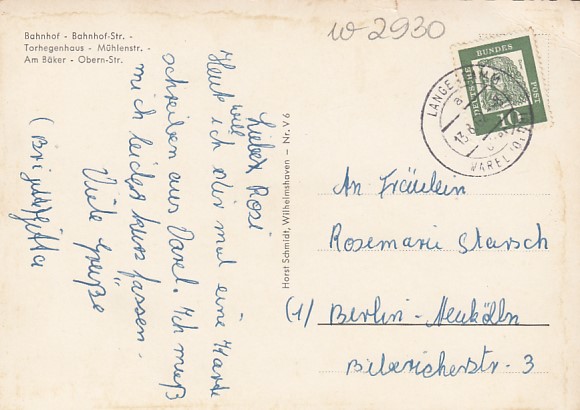 Bahnhof - Bahnhof-Str. -
Torhegenhaus - Mühlenstr. -
Am Bäker - Obern-Str.
w 2930
Liebe Rosi
Heut will ich dir mal eine Karte
schreiben aus Varel. Ich muß
mich leider kurz fassen -
Viele Grüße
(Brigitte)
Horst Schmidt, Wilhelmshaven - Nr. V 6
DEUTSCHE BUNDESPOST
10
LANGE
VAREL (OLDB)
13.6
a
An Fräulein
Rosemarie Starsch
(1) Berlin - Neukölln
str. 3